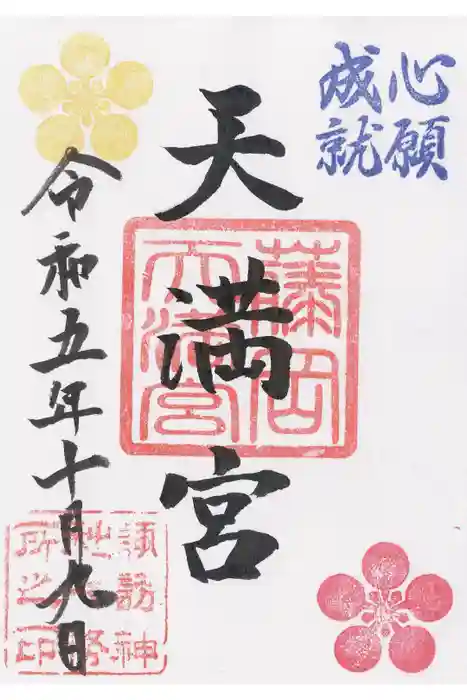 心願
成就
天満宮
藤岡
天満宮
令和五年十月九日
諏訪神
社社務
所之印